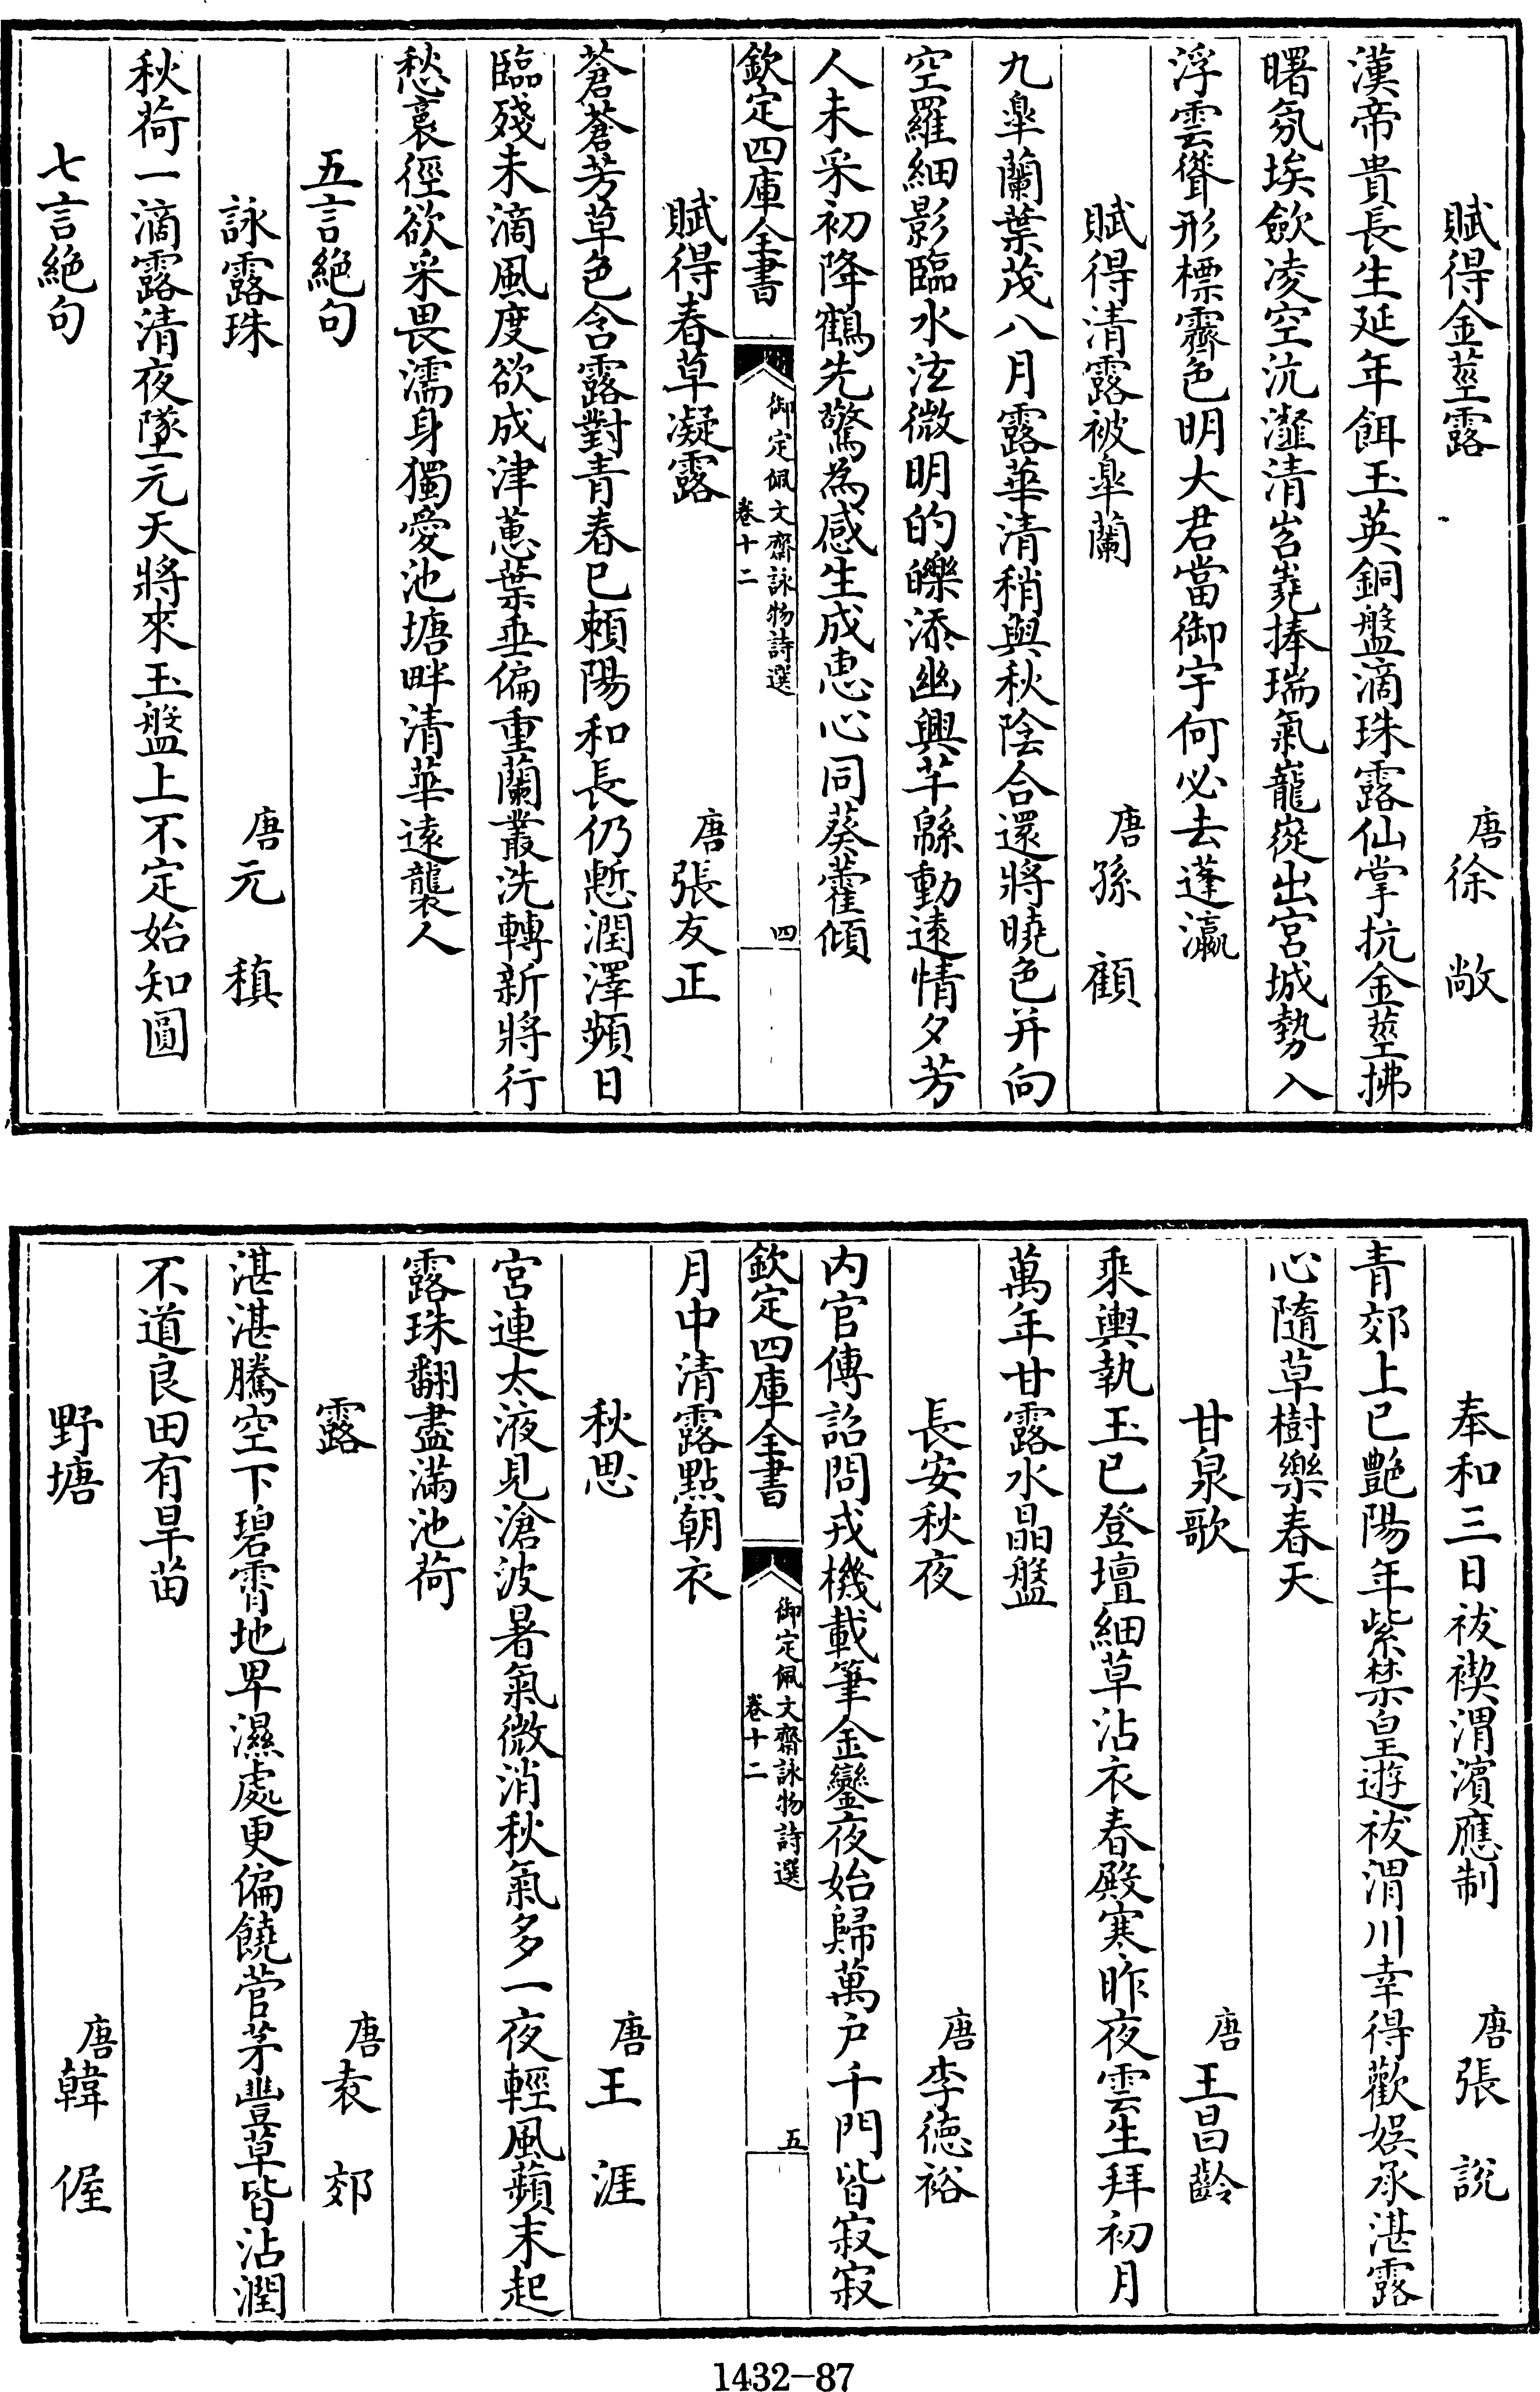 賦得金莖露　唐徐敞
漢帝貴長生延年餌玉英銅盤滴珠露仙掌抗金莖拂
曙氛埃斂凌空沆瀣清岧嶤捧瑞氣巃嵸出宮城勢入
浮雲聳形標霽色明大君當御宇何必去蓬瀛
賦得清露被臯蘭　唐孫顧
九臯蘭葉茂八月露華清稍與秋陰合還將曉色并向
空羅細影臨水泫微明的皪添幽興芊緜動遠情夕芳
人未采初降鶴先驚為感生成惠心同葵藿傾
欽定四庫全書　御定佩文齋詠物詩選　卷十二　四
賦得春草凝露　唐張友正
蒼蒼芳草色含露對青春已賴陽和長仍慙潤澤頻日
臨殘未滴風度欲成津蕙葉垂偏重蘭叢洗轉新將行
愁裛徑欲采畏濡身獨愛池塘畔清華遠襲人
五言絕句
詠露珠　唐元稹
秋荷一滴露清夜墜元天將來玉盤上不定始知圓
七言絕句
奉和三日祓禊渭濱應制　唐張說
青郊上巳艷陽年紫禁皇遊祓渭川幸得歡娛承湛露
心隨草樹樂春天
甘泉歌　唐王昌齡
乘輿執玉已登壇細草沾衣春殿寒昨夜雲生拜初月
萬年甘露水晶盤
長安秋夜　唐李德裕
内官傳詔問戎機載筆金鑾夜始歸萬户千門皆寂寂
欽定四庫全書　御定佩文齋詠物詩選　卷十二　五
月中清露點朝衣
秋思　唐王涯
宮連太液見滄波暑氣微消秋氣多一夜輕風蘋末起
露珠翻盡滿池荷
露　唐袁郊
湛湛騰空下碧霄地卑濕處更偏饒菅茅豐草皆沾潤
不道良田有旱苗
野塘　唐韓偓
1432-87